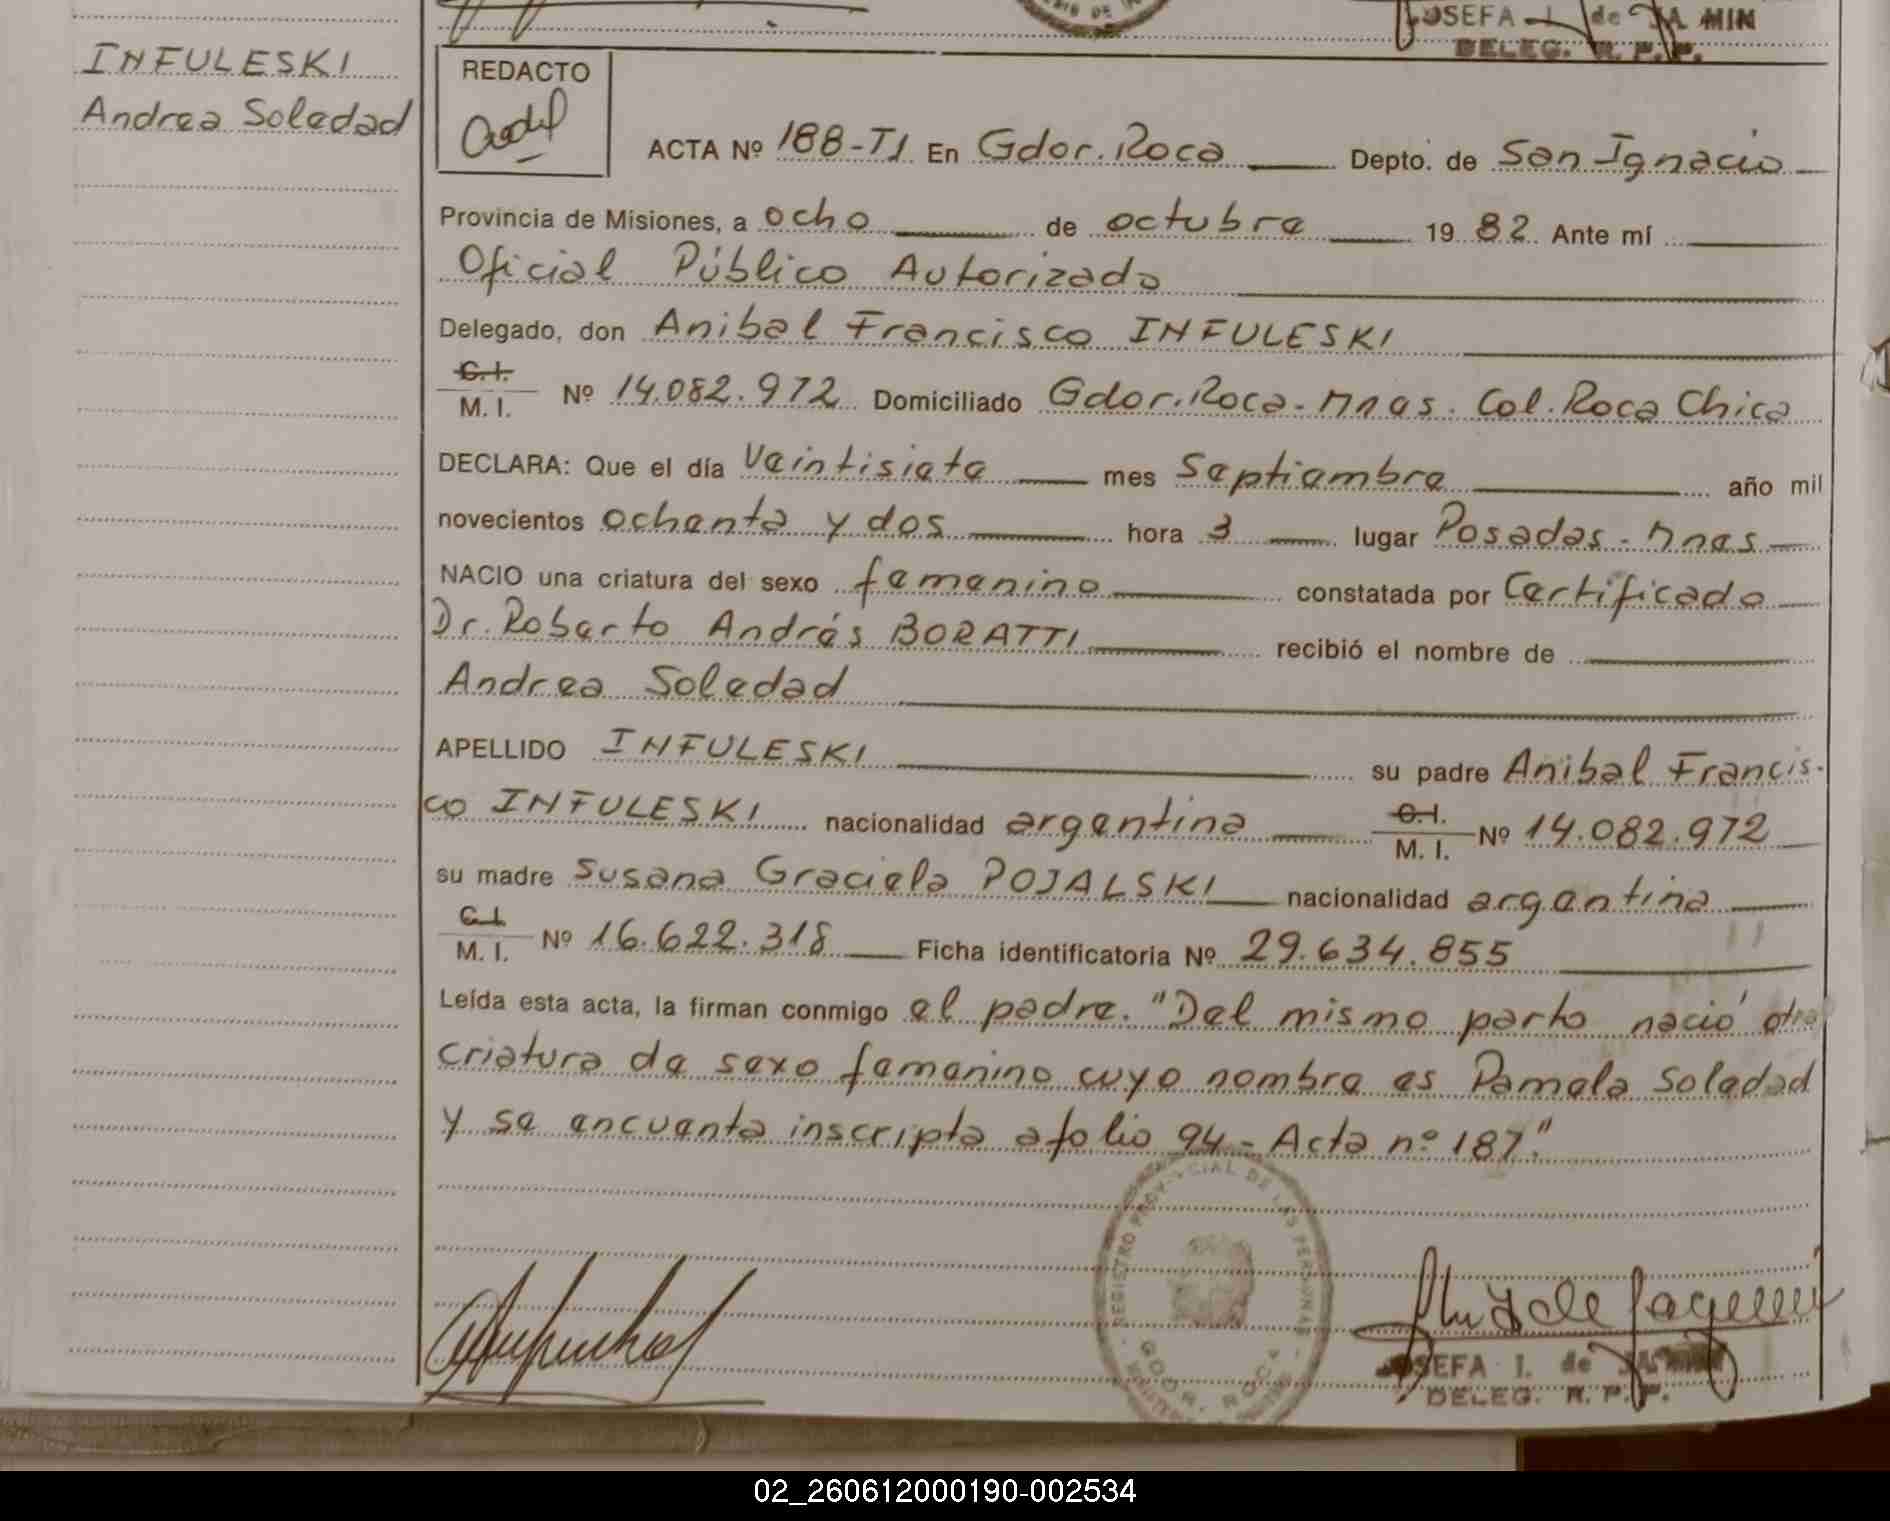 OSEFA I. de JA MIN
DELEG. R. P. P.
INFULESKI
Andrea Soledad
REDACTO
ACTA Nº 188-T1 En Gdor. Roca Depto. de San Ignacio
Provincia de Misiones, a ocho de octubre 19 82 Ante mí
Oficial Público Autorizado
Delegado, don Anibal Francisco INFULESKI
C.I.
M. I. Nº 14.082.972 Domiciliado Gdor. Roca - Mnas. Col. Roca Chica
DECLARA: Que el día Veintisiete mes Septiembre año mil
novecientos ochenta y dos hora 3 lugar Posadas - Mnas
NACIO una criatura del sexo femenino constatada por Certificado
Dr. Roberto Andrés BORATTI recibió el nombre de
Andrea Soledad
APELLIDO INFULESKI su padre Anibal Francis-
co INFULESKI nacionalidad argentina C.I. M. I. Nº 14.082.972
su madre Susana Graciela POJALSKI nacionalidad argentina
C.I.
M. I. Nº 16.622.318 Ficha identificatoria Nº 29.634.855
Leída esta acta, la firman conmigo el padre. "Del mismo parto nació otra
criatura de sexo femenino cuyo nombre es Pamela Soledad
y se encuenta inscripta a folio 94 - Acta nº 187."
REGISTRO PROVINCIAL DE LAS PERSONAS
GDOR. ROCA
OSEFA I. de
DELEG. R. P. P.
02_260612000190-002534